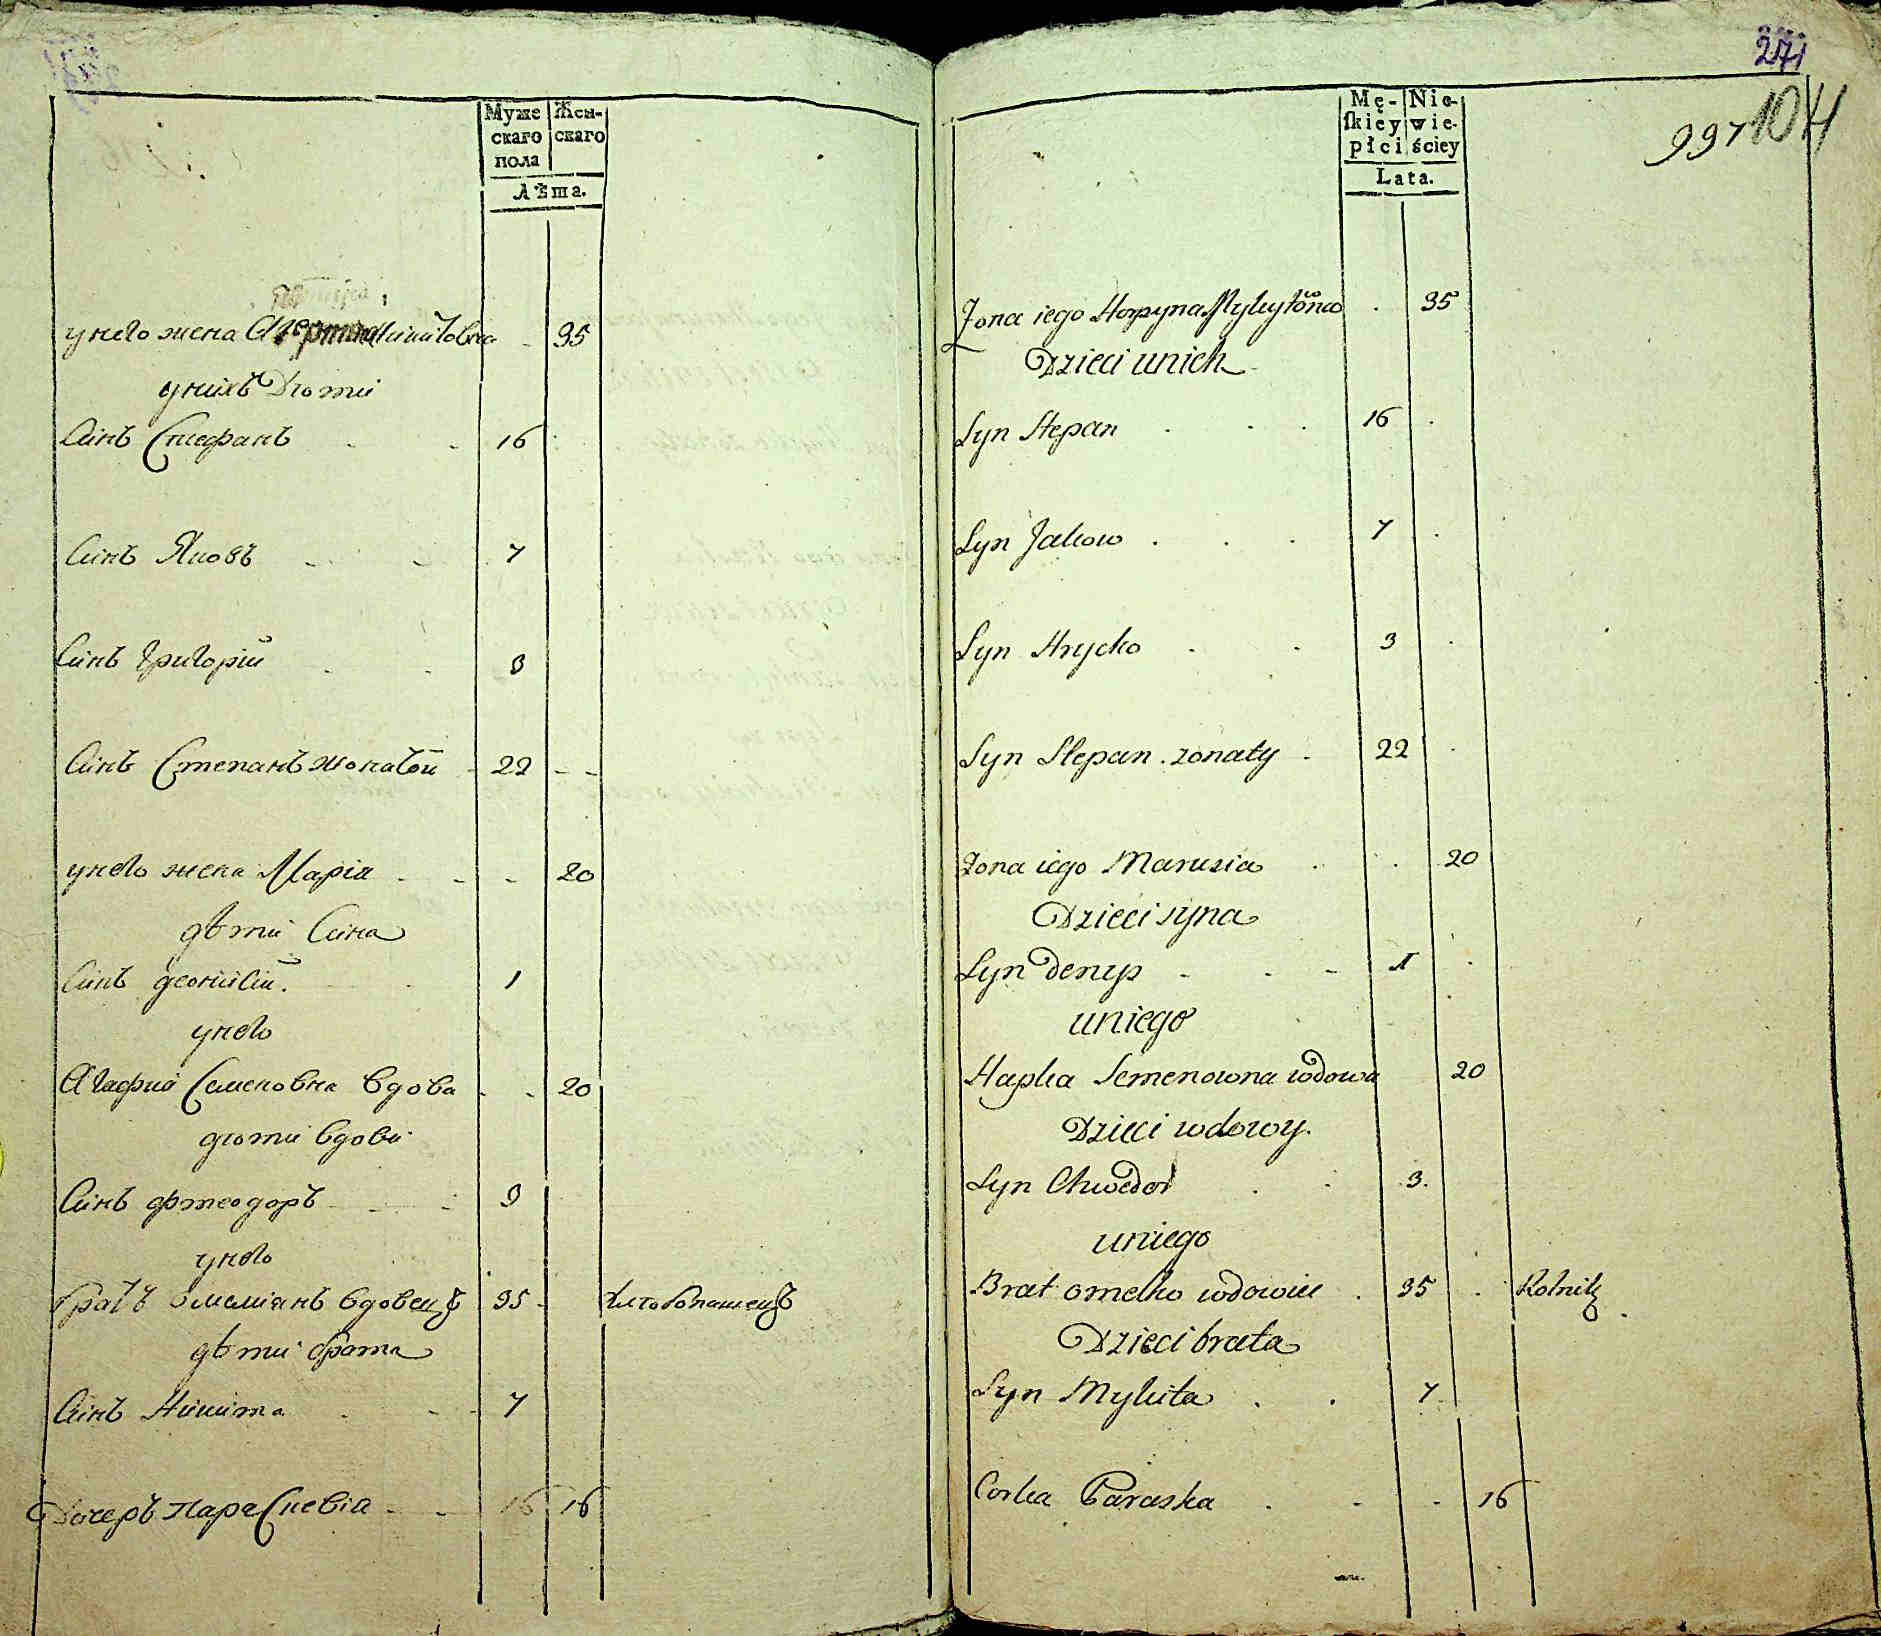 Муже
скаго
пола
Жен-
скаго
Лѣта.
унего жена Никитовна 35
унихъ Дѣти
Синъ Стефанъ 16
Синъ Яковъ 7
Синъ Григорій 3
Синъ Степанъ жонатой 22
унего жена Марія 20
дѣти Сина
Синъ деонисій. 1
унего
Агафиа Семеновна вдова 20
дѣти вдови
Синъ Фтеодоръ 3
унего
братъ омеліянъ вдовецъ 35 хлѣбопашецъ
дѣти брата
Синъ Никита 7
Дочеръ параскевія 16 16
271
997 104
Mę-
skiey
płci
Nie-
wie-
ściey
Lata.
Żona iego Horpyna Mykytowna 35
Dzieci unich
Syn Stepan 16
Syn Jakow 7
Syn Hrycko 3
Syn Stepan. zonaty 22
Zona iego Marusia 20
Dzieci syna
Syn Denys 1
uniego
Hapka Semenowna wdowa 20
Dzieci wdowy.
Syn Chwedor 3.
uniego
Brat omelko wdowiec 35 Rolnik
Dzieci brata
Syn Mykita 7
Corka Paraska 16